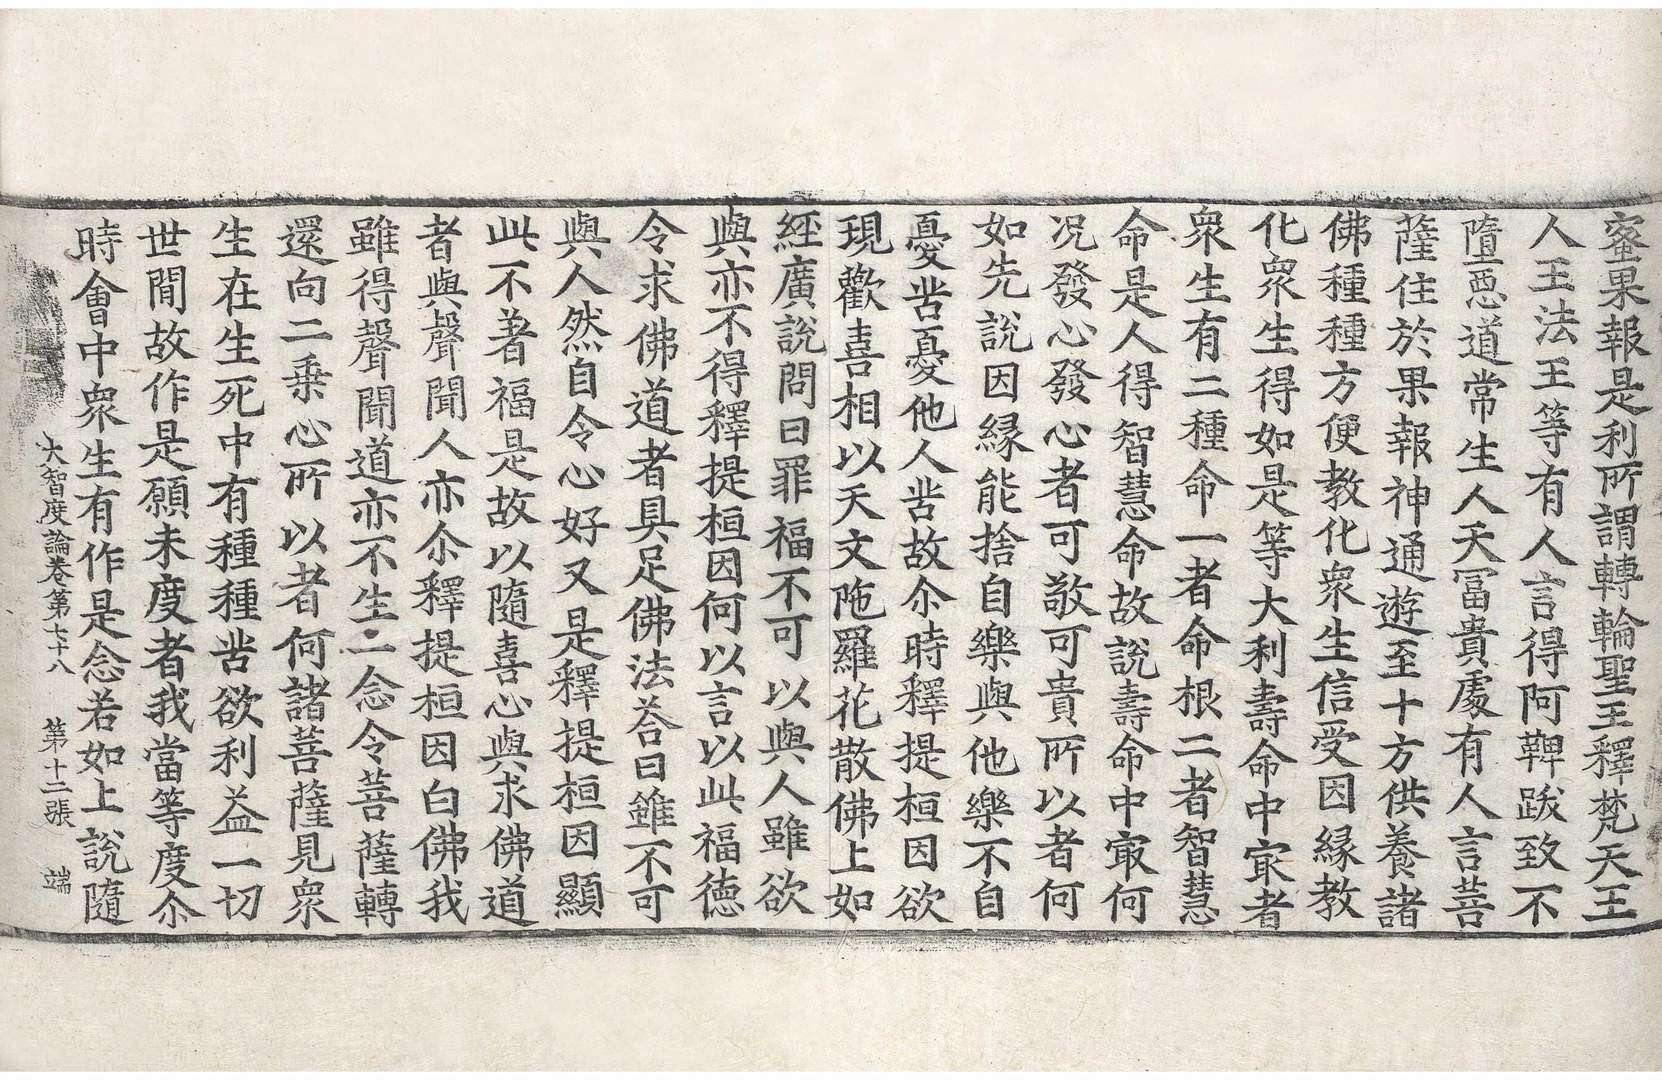 蜜果報是利所謂轉輪聖王釋梵天王
人王法王等有人言得阿鞞跋致不
墮惡道常生人天冨貴處有人言菩
薩住於果報神通遊至十方供養諸
佛種種方便教化衆生信受因縁教
化衆生得如是等大利壽命中㝡者
衆生有二種命一者命根二者智慧
命是人得智慧命故說壽命中㝡何
况發心發心者可敬可貴所以者何
如先說因縁能捨自樂與他樂不自
憂苦憂他人苦故尒時釋提桓因欲
現歡喜相以天文陁羅花散佛上如
經廣說問曰罪福不可以與人雖欲
與亦不得釋提桓因何以言以此福德
令求佛道者具足佛法荅曰雖不可
與人然自令心好又是釋提桓因顯
此不著福是故以隨喜心與求佛道
者與聲聞人亦尒釋提桓因白佛我
雖得聲聞道亦不生二念令菩薩轉
還向二乗心所以者何諸菩薩見衆
生在生死中有種種苦欲利益一切
世間故作是願未度者我當等度尒
時會中衆生有作是念若如上說隨
大智度論卷第七十八 第十二張 端